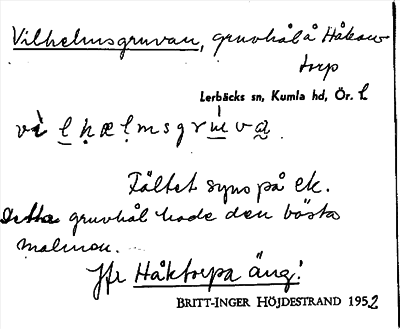 Vilhelmsgruvan, gruvhål å Håkan-
torp
Lerbäcks sn, Kumla hd, Ör. l.
Fältet syns på ek.
Detta gruvhål hade den bästa
malmen.
Jfr Håktorpa äng!
BRITT-INGER HÖJDESTRAND 1952